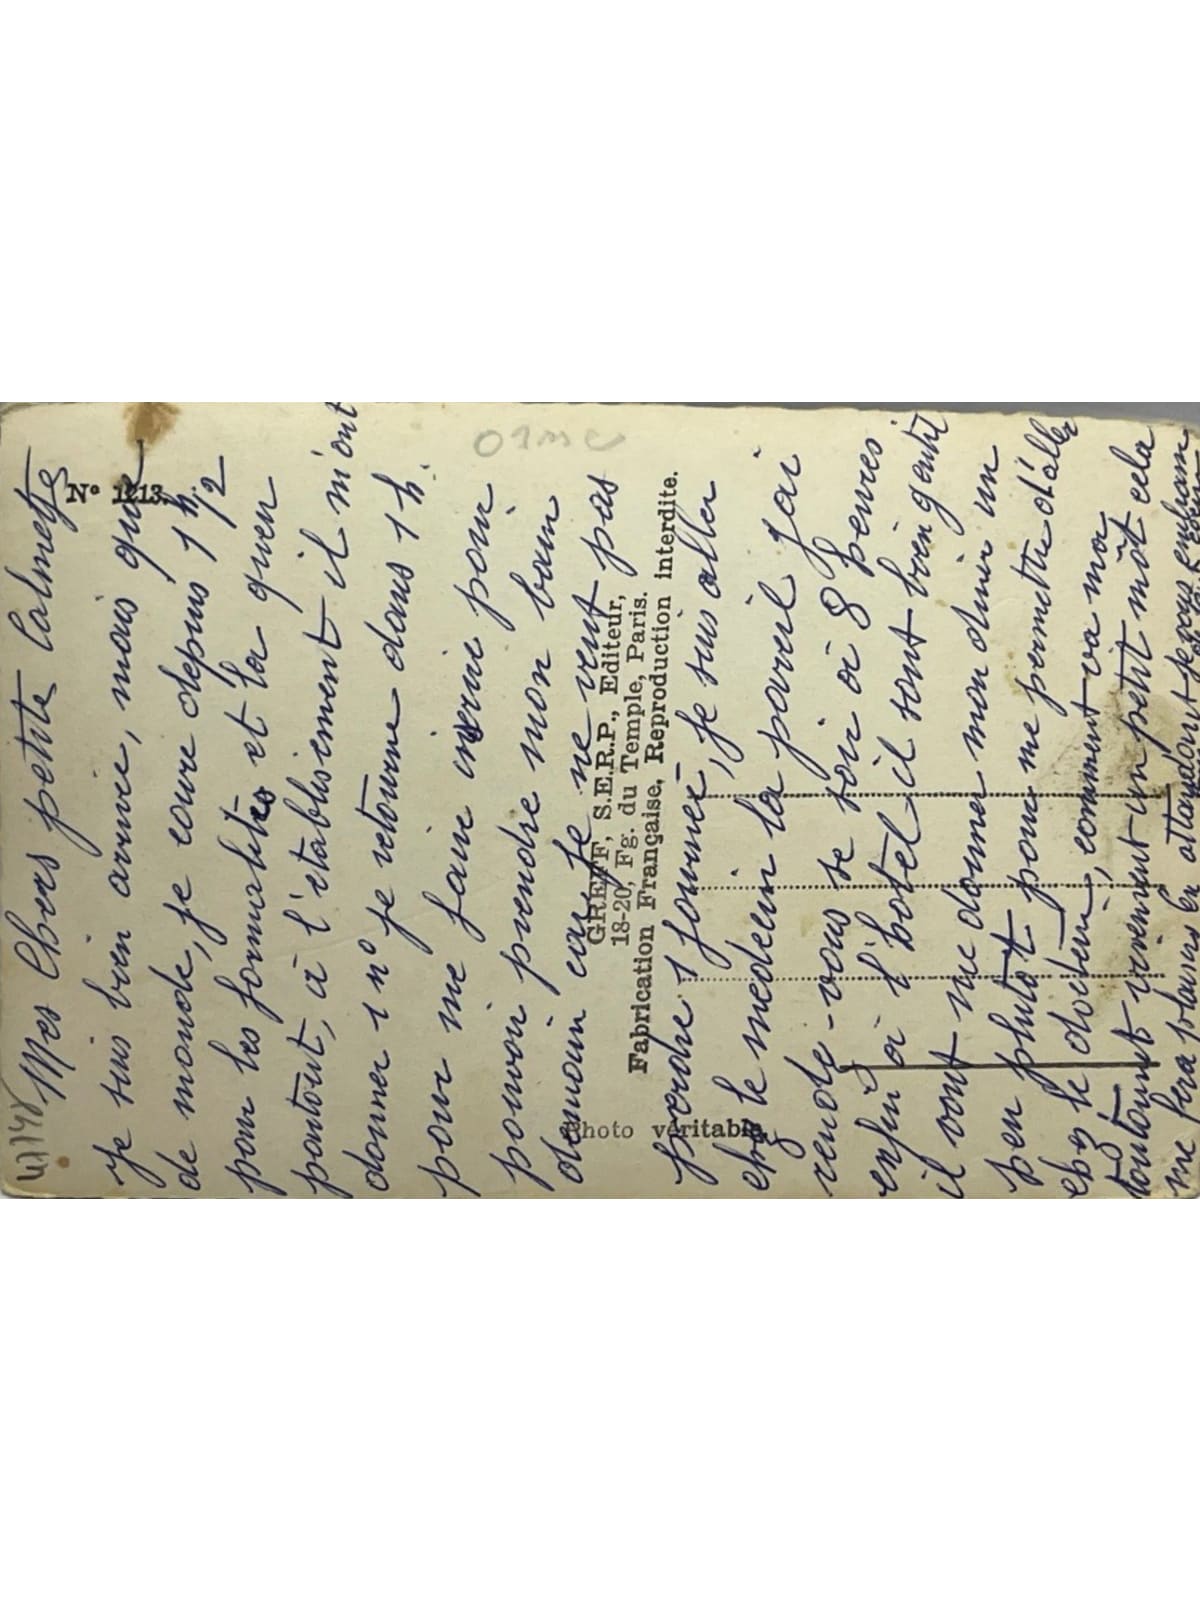 Mes Chers petite Calmette
N° 1213.
Je suis bien arrivé, mais que
de monde, je coure depuis 1 h 1/2
pour les formalités et la queu
partout, à l'établissement il m'ont
donner 1 n° je retourne dans 1 h.
pour me faire inscrire pour
pouvoir prendre mon bain
demain car je ne veut pas
perdre 1 journeé, je suis aller
chez le medecin la pareil jai
rendez-vous se soir à 8 heures
enfin à l'hotel il sont bien gentil
il vont me donner mon diner un
peu plutot pour me permettre d'aller
chez le docteur, comment va ma
toutoune envenvent un petit môt cela
me fera plaisir En attendant je vous
Photo véritable
GREFF, S.E.R.P., Editeur,
18-20, Fg. du Temple, Paris.
Fabrication Française, Reproduction interdite.